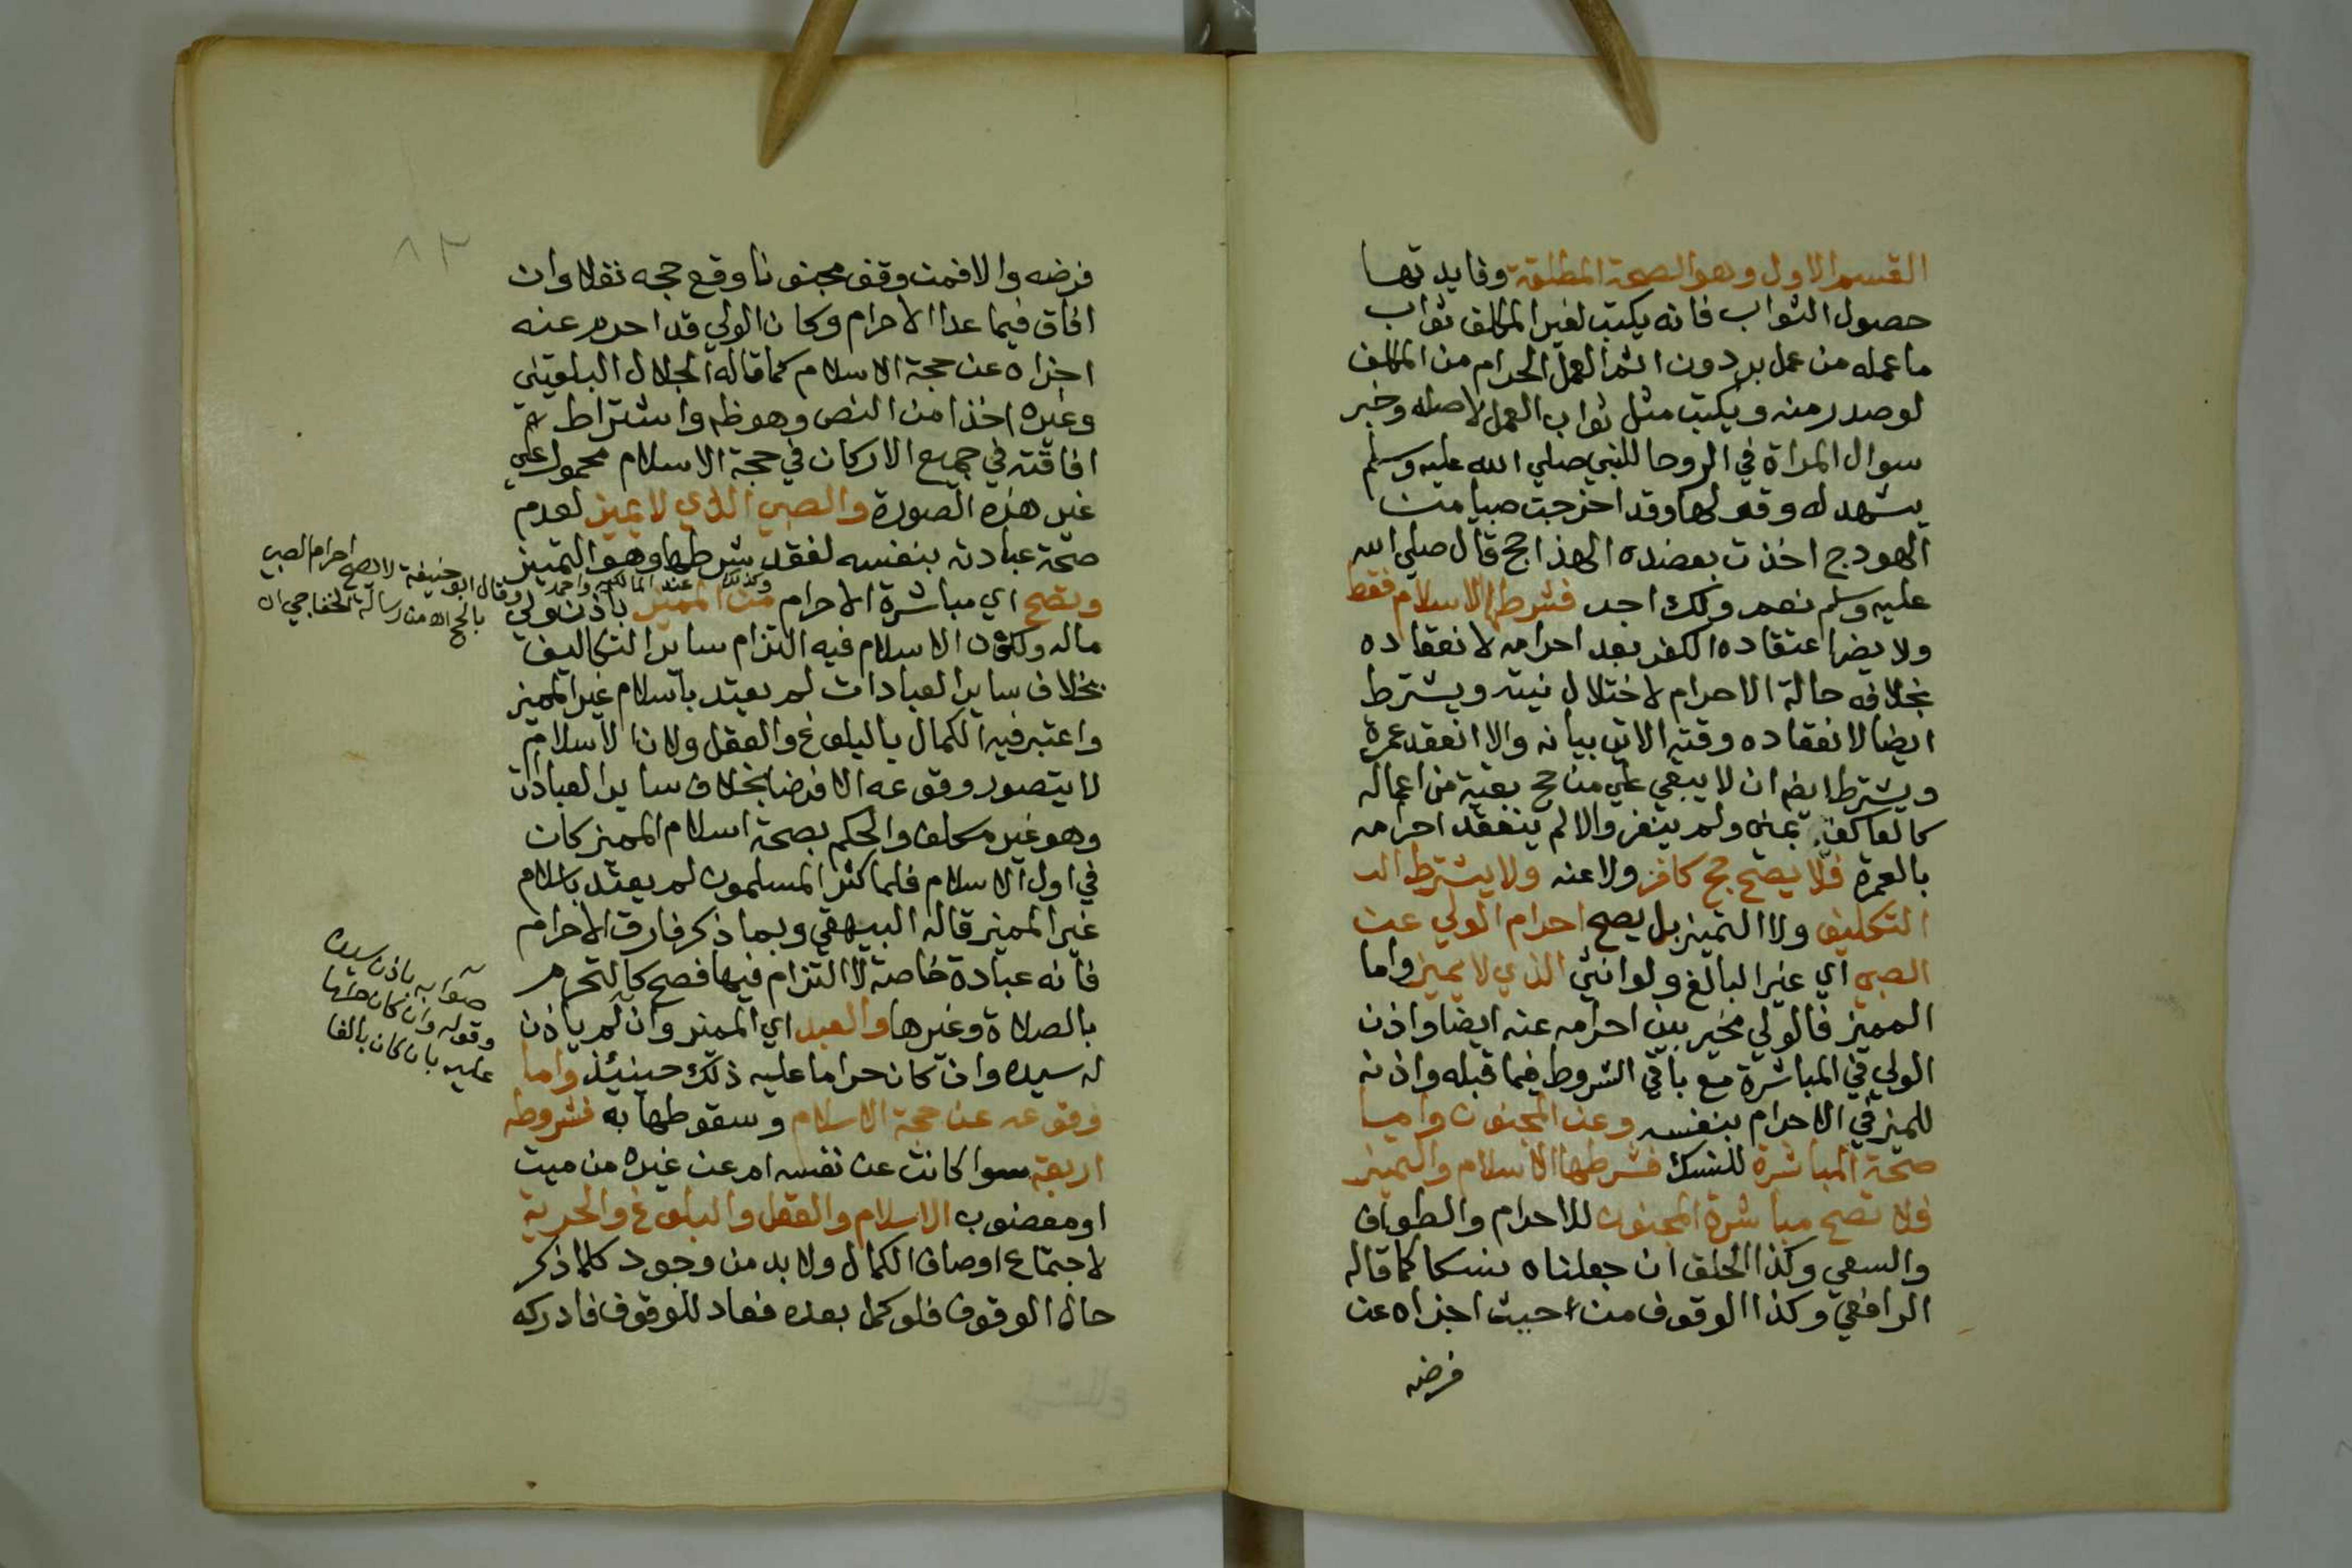 القسم الاول وهو الصحة المطلقة وفايدتها
حصول الثواب فانه يكتب لغير المكلف ثواب
ما عمله من عمل بر دون اثم العمل الحرام من المكلف
لو صدر منه ويكتب مثل ثواب العمل لاصله وخبر
سوال المراة في الروحا للنبي صلي الله عليه وسلم
يشهد له وقولها وقد اخرجت صبيا من
الهودج اخذت بعضده الهذا حج قال صلي الله
عليه وسلم نعم ولك اجر فشرطها الاسلام فقط
ولا يضر اعتقاده الكفر بعد احرامه لانعقاده
بخلافه حالة الاحرام لاختلال نيته ويشترط
ايضا لانعقاده وقته الاتي بيانه والا انعقد عمرة
ويشترط ايضا ان لا يبقي علي من حج بقية من اعماله
كالعاكف بمني ولم ينفر والا لم ينعقد احرامه
بالعمرة فلا يصح حج كافر ولا عنه ولا يشترط له
التكليف ولا التميز بل يصح احرام الولي عن
الصبي اي غير البالغ ولو انثي الذي لا يميز واما
المميز فالولي مخير بين احرامه عنه ايضا واذن
الولي في المباشرة مع باقي الشروط فيما قبله واذنه
للمميز في الاحرام بنفسه وعن المجنون واما
صحة المباشرة للنسك فشرطها الاسلام والتميز
فلا تصح مباشرة المجنون للاحرام والطواف
والسعي وكذا الحلق ان جعلناه نسكا كما قاله
الرافعي وكذا الوقوف من حيث اجزاه عن
فرضه
فرضه والا فمن وقف مجنونا وقع حجه نفلا وان
افاق فيما عدا الاحرام وكان الولي قد احرم عنه
اجزاه عن حجة الاسلام كما قاله الجلال البلقيني
وغيره اخذا من النص وهو ظ واشتراط
افاقته في جميع الاركان في حجة الاسلام محمول علي
غير هذه الصورة والصبي الذي لا يميز لعدم
صحة عبادته بنفسه لفقد شرطها وهو التميز
وتصح اي مباشرة الاحرام من المميز باذن ولي
وكذلك عند المالكيه واحمد وقال ابو حنيفة لا يصح احرام الصبي
بالحج اه من رسالة الخفاجي اه
ماله ولكون الاسلام فيه التزام ساير التكاليف
بخلاف ساير العبادات لم يعتد باسلام غير المميز
واعتبر فيه الكمال بالبلوغ والعقل ولان الاسلام
لا يتصور وقوعه الا فرضا بخلاف ساير العبادات
وهو غير مكلف والحكم بصحة اسلام المميز كان
في اول الاسلام فلما كثر المسلمون لم يعتد باسلام
غير المميز قاله البيهقي وبما ذكر فارق الاحرام
فانه عبادة خاصة لا التزام فيها فصح كالتحرم
بالصلاة وغيرها والعبد اي المميز وان لم ياذن
له سيده وان كان حراما عليه ذلك حينئذ واما
صوابه باذن سيده
وقوله وان كان حراما
عليه بان كان بالغا
وقوعه عن حجة الاسلام وسقوطها به فشروطه
اربعة سوا كانت عن نفسه ام عن غيره من ميت
او معضوب الاسلام والعقل والبلوغ والحرية
لاجتماع اوصاف الكمال ولا بد من وجود كلما ذكر
حال الوقوف فلو كمل بعده فعاد للوقوف فادركه